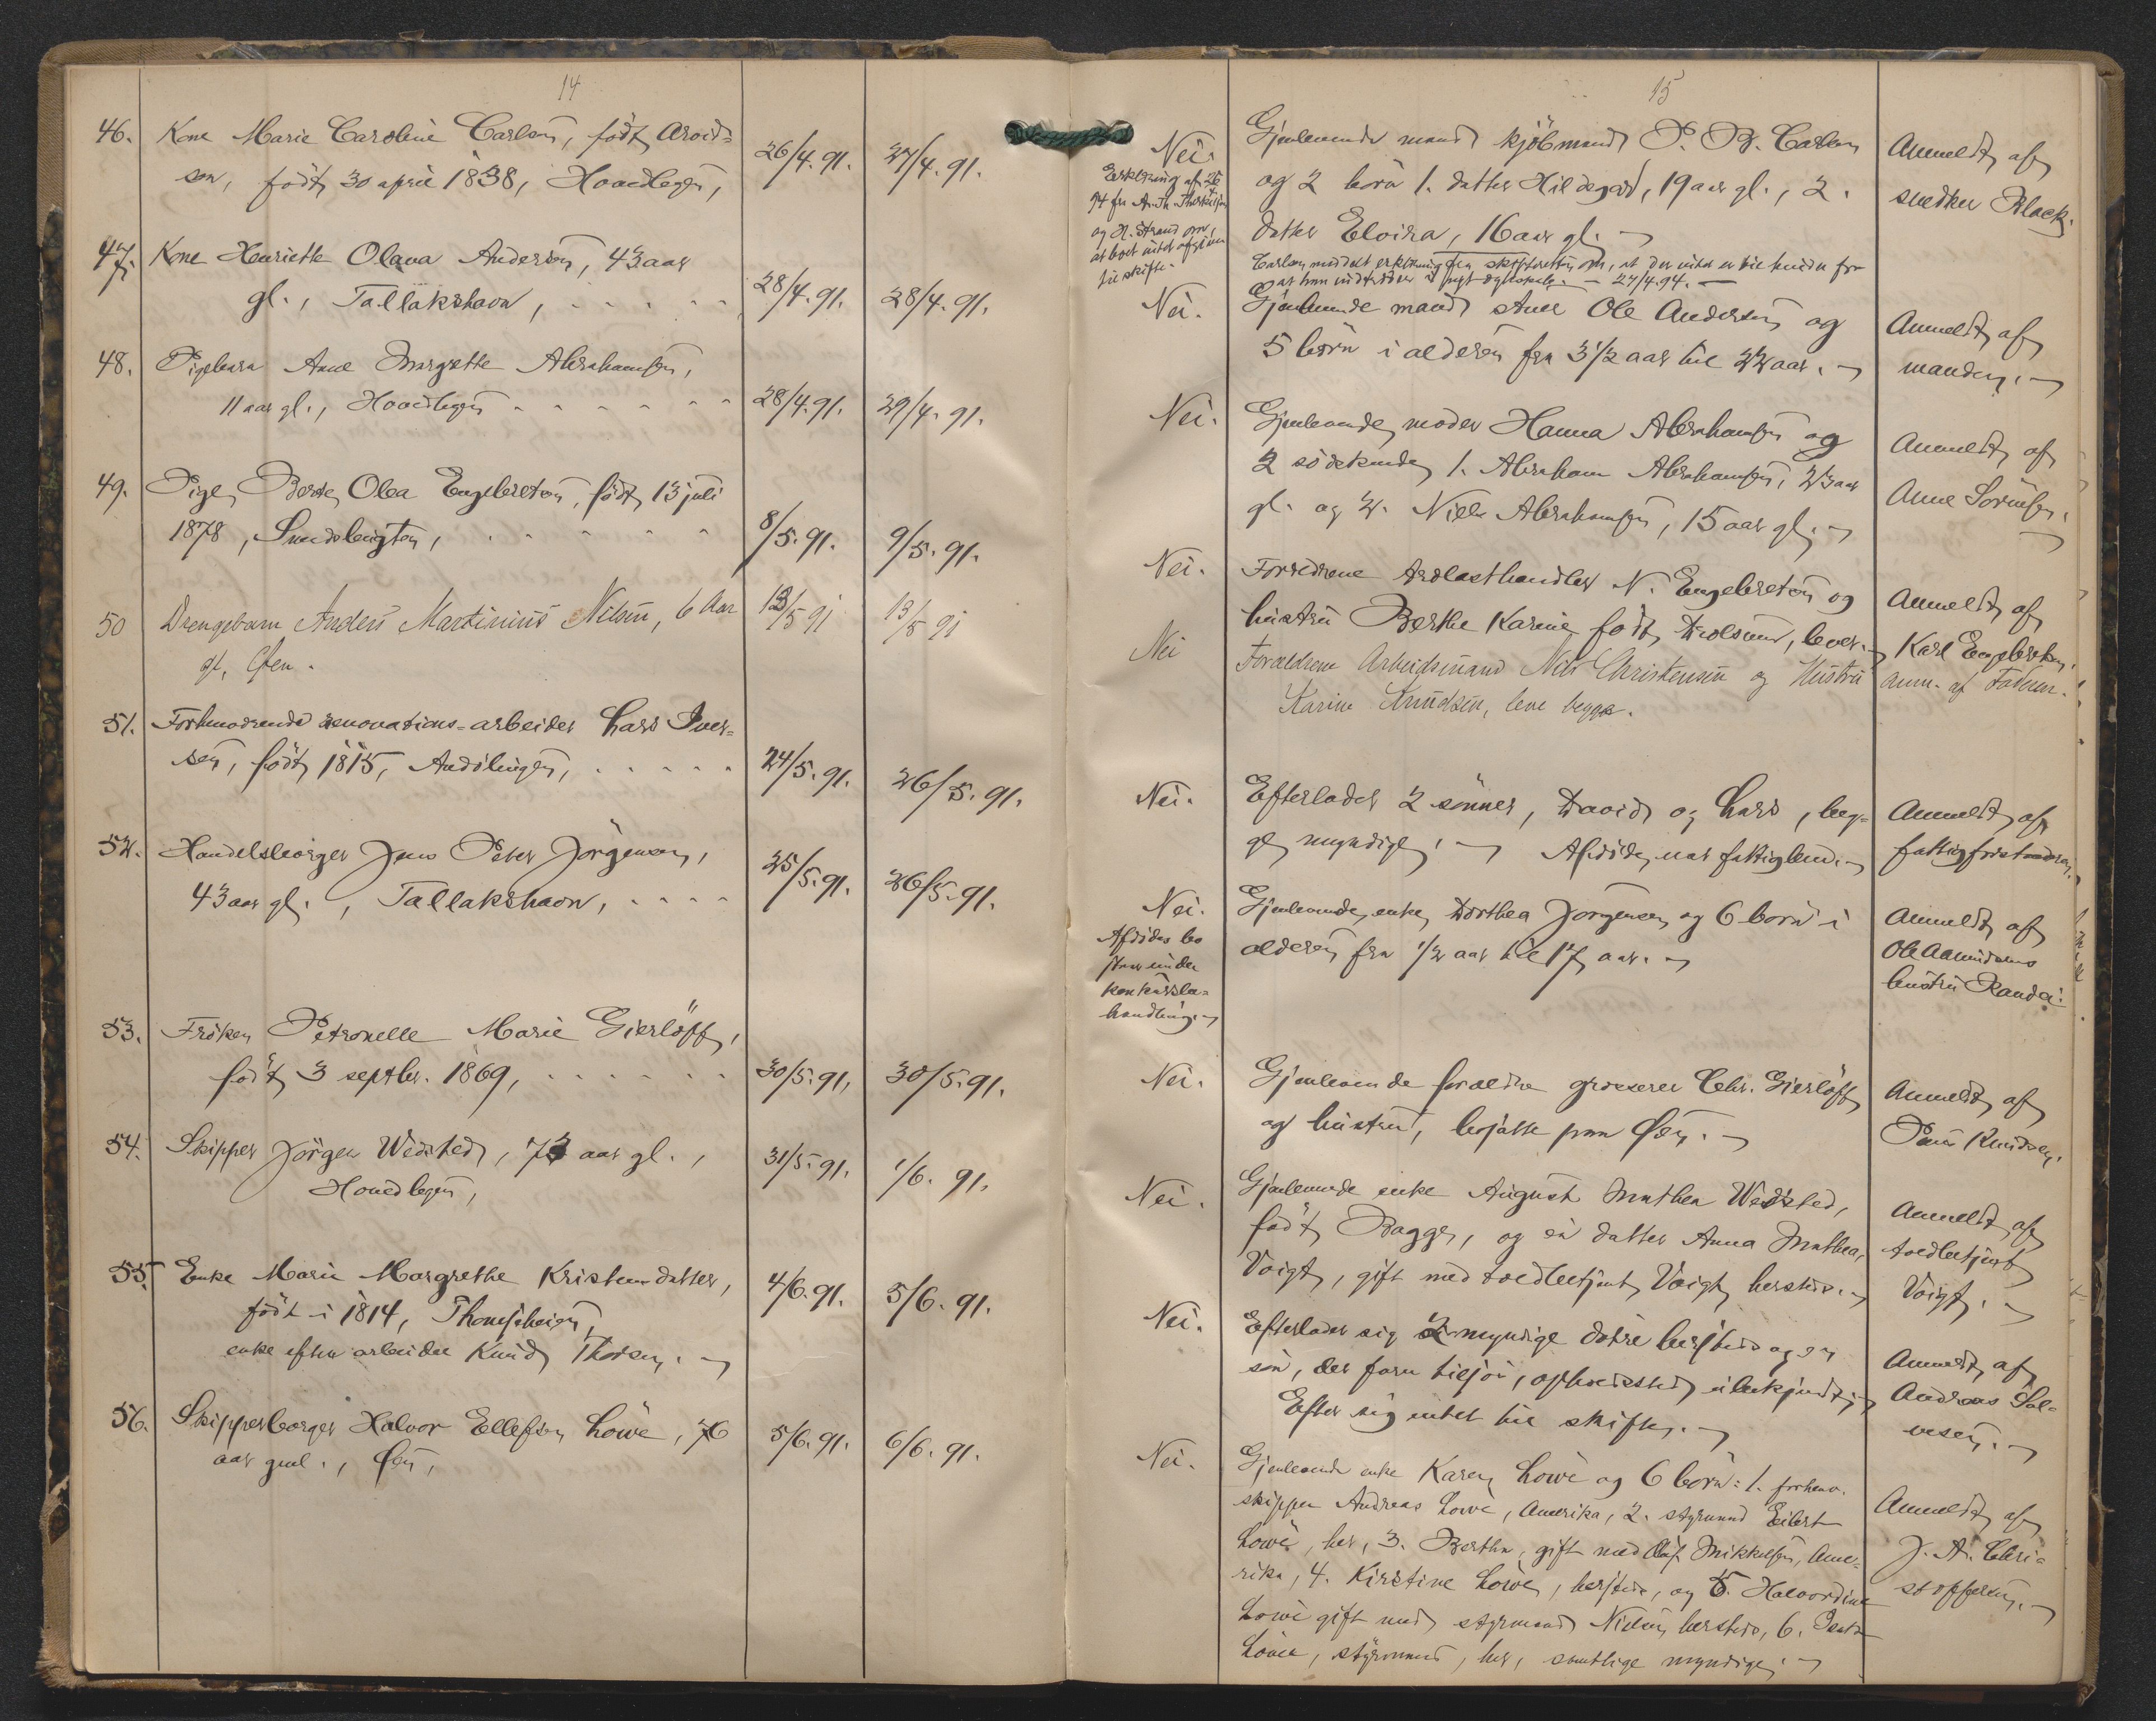 14
46. Kone Marie Caroline Carlsen, født Arvid=
sen, født 30 april 1838, Hovedlegen,
26/4.91. 27/4.91.
47. Kone Henriette Olava Andersen, 43 aar
gl., Tallakshavn,
28/4.91. 28/4.91.
48. Pigebarn Anne Margrethe Abrahamsen,
11 aar gl., Hovedlegen
28/4.91. 29/4.91.
49. Pige, Berte Olea Engebretsen, født 13 juli
1878, Sundslengten,
8/5.91. 9/5.91.
50 Drengebarn Anders Martinius Nilsen, 6 Aar
gl, Øen.
13/5 91 13/5 91
51. Forhenværende renovations=arbeider Lars Iver=
sen, født 1815, Andölingen,
24/5.91. 26/5.91.
52. Handelsborger Jens Peter Jörgensen,
43 aar gl., Tallakshavn,
25/5.91. 26/5.91.
53. Fröken Petronelle Marie Gierlöff,
født 3 septbr. 1869,
30/5.91, 30/5.91.
54. Skipper Jörgen Wedsted, 73 aar gl.,
Hovedlegen,
31/5.91. 1/6.91.
55. Enke Marie Margrethe Kristensdatter,
født i 1814, Thomesheien,
enke efter arbeider Knud Thorsen.
4/6.91. 5/6.91.
56. Skipperborger Halvor Ellefsen Löwe, 76
aar gml., Øen,
5/6.91. 6/6.91.
15
Nei.
Erklæring af 26
94 fra
og H. Strand om,
at boet intet afgiver
til skifte.
Gjenlevende mand kjöbmand P. B. Carlsen
og 2 börn 1. datter Hildegard, 19 aar gl., 2.
datter Elvira, 16 aar gl.
Carlsen meddelt erklæring fra skifteretten om, at der intet er til hinder for
at han indtræder i nyt ægteskab. 27/4.94.
Anmeldt af
snedker Black.
Nei. Gjenlevende mand Ole Andersen og
5 börn i alderen fra 3 1/2 aar til 22 aar.
Anmeldt af
manden.
Nei. Gjenlevende moder Hanna Abrahamsen og
2 södskende 1. Abraham Abrahamsen, 23 aar
gl. og 2. Niels Abrahamsen, 15 aar gl.
Anmeldt af
Anne Sörensen.
Nei. Forældrene trælasthandler N. Engebretsen og
hustru Berthe Karine, født, lever.
Anmeldt af
Karl Engebretsen.
Nei Forældrene Arbeidsmand Nils Christensen og Hustru
Karine Knudsen, leve begge.
anm. af Faderen.
Nei. Efterlader 2 sönner, David og Lars, beg=
ge myndige. Afdöde var fattiglem.
Anmeldt af
fattigforstanderen.
Nei.
Afdödes bo
staar under
konkursbe=
handling.
Gjenlevende enke Dorthea Jorgensen og 6 börn i
alderen fra 1/2 aar til 17 aar.
Anmeldt af
Ole Aamundsens
hustru Randi.
Nei. Gjenlevende forældre grosserer Chr. Gierlöff
og hustru, bosatte paa Øen.
Anmeldt af
Knudsen.
Nei. Gjenlevende enke August Mathea Wedsted,
født Bagge, og en datter Anna Mathea,
Voigt, gift med toldbetjent Voigt hersteds.
Anmeldt af
toldbetjent
Voigt.
Nei. Efterlader sig 2 myndige døtre hersteds og en
sön, der farer tilsjös, opholdssted ubekjendt.
Efter sig intet til skifte.
Anmeldt af
Andreas Sal=
vesen.
Nei. Gjenlevende enke Karen Löwe og 6 börn: 1. forhenv.
skipper Andreas Löwe, Amerika, 2. styrmand Eilert
Löwe, her, 3. Bertha, gift med Olaf Mikkelsen, Ame=
rika, 4. Kirstine Löwe, hersteds, og 5. Halvordine
Löwe gift med styrmand Nielsen, hersteds, 6.
Löwe, styrmand, her, samtlige myndige.
Anmeldt af
J. A. Chri=
stoffersen.